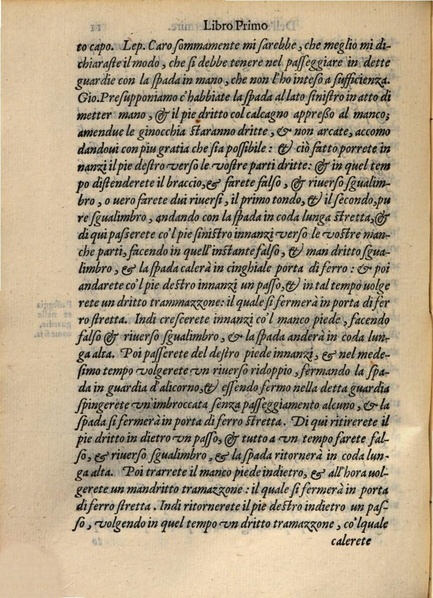 Libro Primo
to capo. Lep. Caro sommamente mi sarebbe, che meglio mi di-
chiaraste il modo, che si debbe tenere nel passeggiare in dette
guardie con la spada in mano, che non l'ho inteso a sufficienza.
Gio. Presupponiamo c'habbiate la spada al lato sinistro in atto di
metter mano, & il pie dritto col calcagno appresso al manco;
amendue le ginocchia staranno dritte, & non arcate, accomo
dandoui con piu gratia che sia possibile: & ciò fatto porrete in
nanzi il pie destro verso le vostre parti dritte: & in quel tem
po distenderete il braccio, & farete falso, & riuerso sgualim-
bro, o vero farete dui riuersi, il primo tondo, & il secondo, pu
re sgualimbro, andando con la spada in coda lunga stretta, &
di qui passerete co'l pie sinistro innanzi verso le vostre man-
che parti, facendo in quell'instante falso, & man dritto sgua-
limbro, & la spada calerà in cinghiale porta di ferro: & poi
andarete co'l pie destro innanzi un passo, & in tal tempo volge
rete un dritto trammazzone: il quale si fermerà in porta di fer
ro stretta. Indi crescerete innanzi co'l manco piede, facendo
falso & riuerso sgualimbro, & la spada anderà in coda lun-
ga alta. Poi passerete del destro piede innanzi, & nel mede-
simo tempo volgerete un riuerso ridoppio, fermando la spa-
da in guardia d'alicorno, & essendo fermo nella detta guardia
spingerete vn'imbroccata senza passeggiamento alcuno, & la
spada si fermerà in porta di ferro stretta. Di qui ritirerete il
pie dritto in dietro vn passo, & tutto a vn tempo farete fal-
so, & riuerso sgualimbro, & la spada ritornerà in coda lun-
ga alta. Poi trarrete il manco piede indietro, & all'hora vol-
gerete un mandritto tramazzone: il quale si fermerà in porta
di ferro stretta. Indi ritornerete il pie destro indietro un pas-
so, volgendo in quel tempo vn dritto tramazzone, co'l quale
calerete